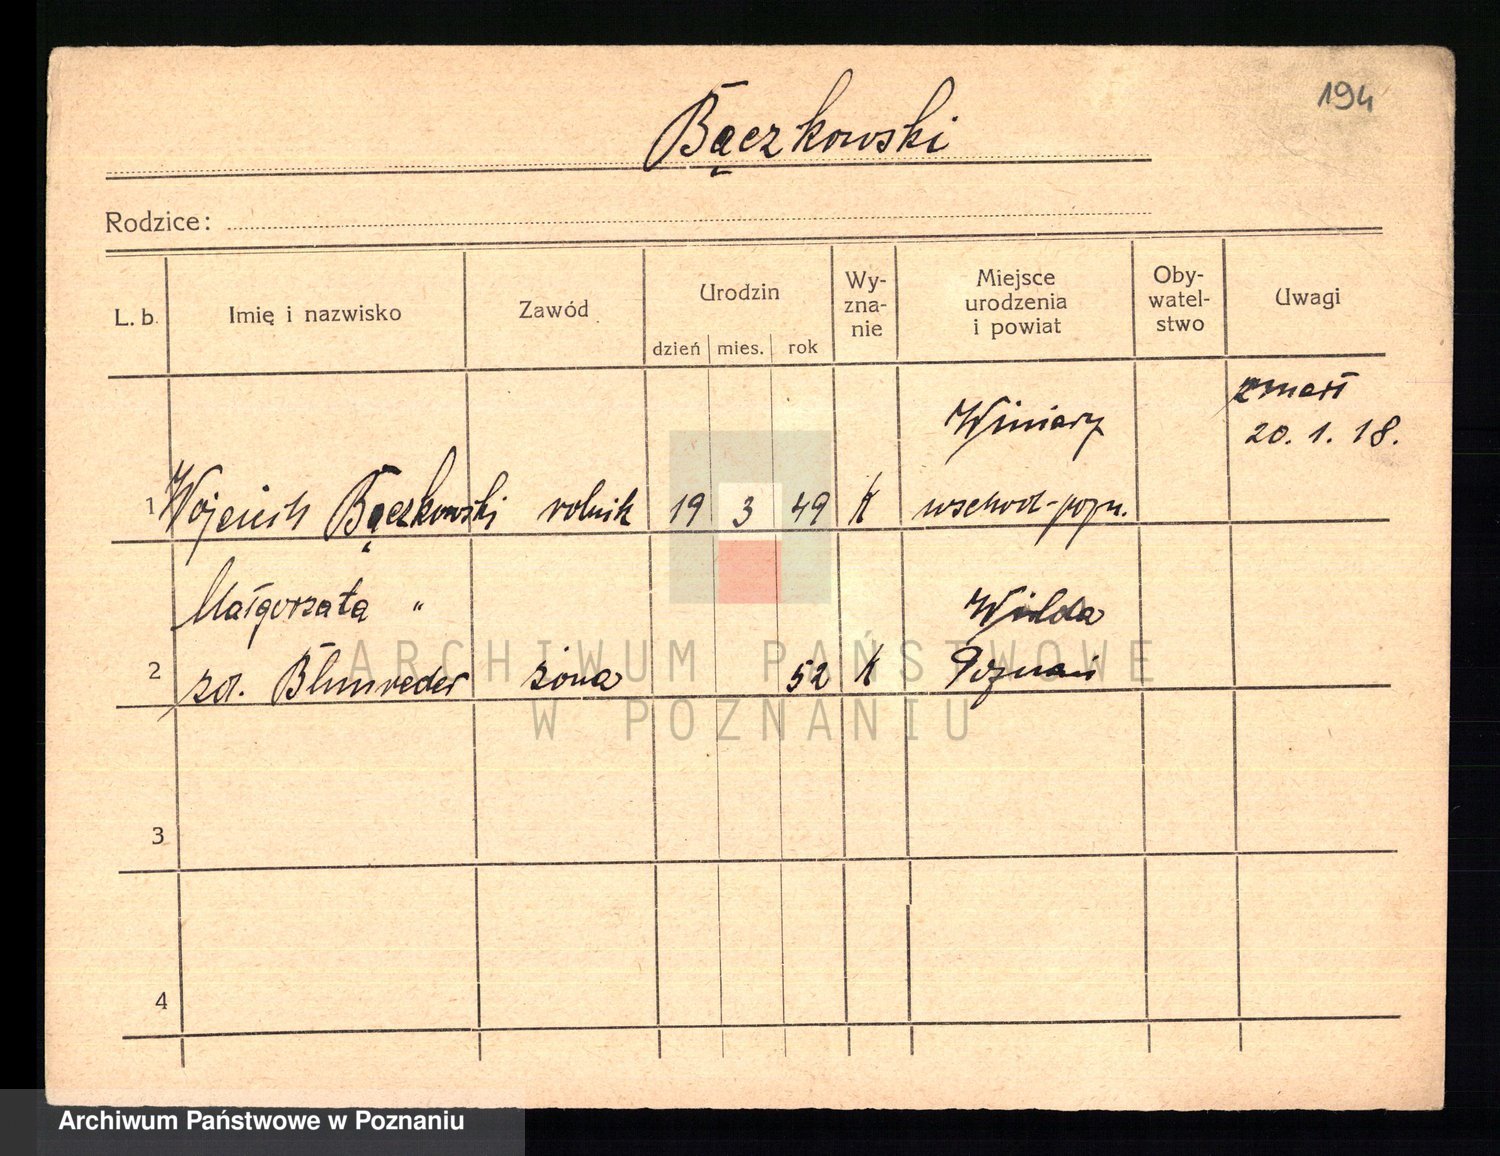 194
Bączkowski
Rodzice:
L. b. Imię i nazwisko Zawód Urodzin dzień mies. rok Wy-zna-nie Miejsce urodzenia i powiat Oby-watel-stwo Uwagi
Winiary zmarł
20. 1. 18.
1 Wojciech Bączkowski rolnik 19 3 49 K wschod-pozn.
Małgorzata " Wilda
2 zd. żona 52 K Poznań
3
4
ARCHIWUM PAŃSTWOWE
W POZNANIU
Archiwum Państwowe w Poznaniu